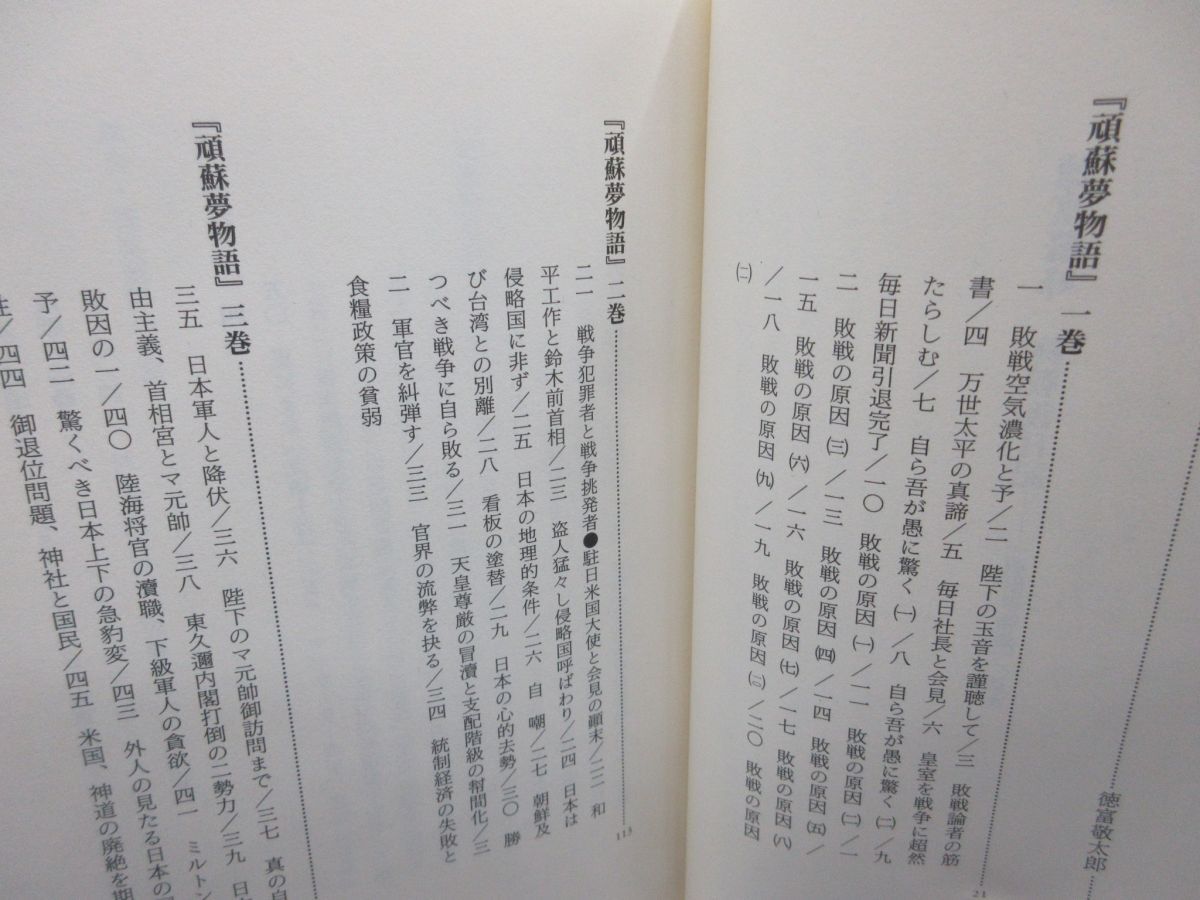 徳富敬太郎
『頑蘇夢物語』一巻
21
一　敗戦空気濃化と予／二　陛下の玉音を謹聴して／三　敗戦論者の筋
書／四　万世太平の真諦／五　毎日社長と会見／六　皇室を戦争に超然
たらしむ／七　自ら吾が愚に驚く㈠／八　自ら吾が愚に驚く㈡／九
毎日新聞引退完了／一〇　敗戦の原因㈠／一一　敗戦の原因㈡／一
二　敗戦の原因㈢／一三　敗戦の原因㈣／一四　敗戦の原因㈤／
一五　敗戦の原因㈥／一六　敗戦の原因㈦／一七　敗戦の原因㈧
／一八　敗戦の原因㈨／一九　敗戦の原因㈡／二〇　敗戦の原因
㈡
『頑蘇夢物語』二巻
113
二一　戦争犯罪者と戦争挑発者●駐日米国大使と会見の顚末／二二　和
平工作と鈴木前首相／二三　盗人猛々し侵略国呼ばわり／二四　日本は
侵略国に非ず／二五　日本の地理的条件／二六　自　嘲／二七　朝鮮及
び台湾との別離／二八　看板の塗替／二九　日本の心的去勢／三〇　勝
つべき戦争に自ら敗る／三一　天皇尊厳の冒瀆と支配階級の幇間化／三
二　軍官を糾弾す／三三　官界の流弊を抉る／三四　統制経済の失敗と
食糧政策の貧弱
『頑蘇夢物語』三巻
三五　日本軍人と降伏／三六　陛下のマ元帥御訪問まで／三七　真の自
由主義、首相宮とマ元帥／三八　東久邇内閣打倒の二勢力／三九　日
敗因の一／四〇　陸海将官の瀆職、下級軍人の貪欲／四一　ミルトン
予／四二　驚くべき日本上下の急豹変／四三　外人の見たる日本の
性／四四　御退位問題、神社と国民／四五　米国、神道の廃絶を期